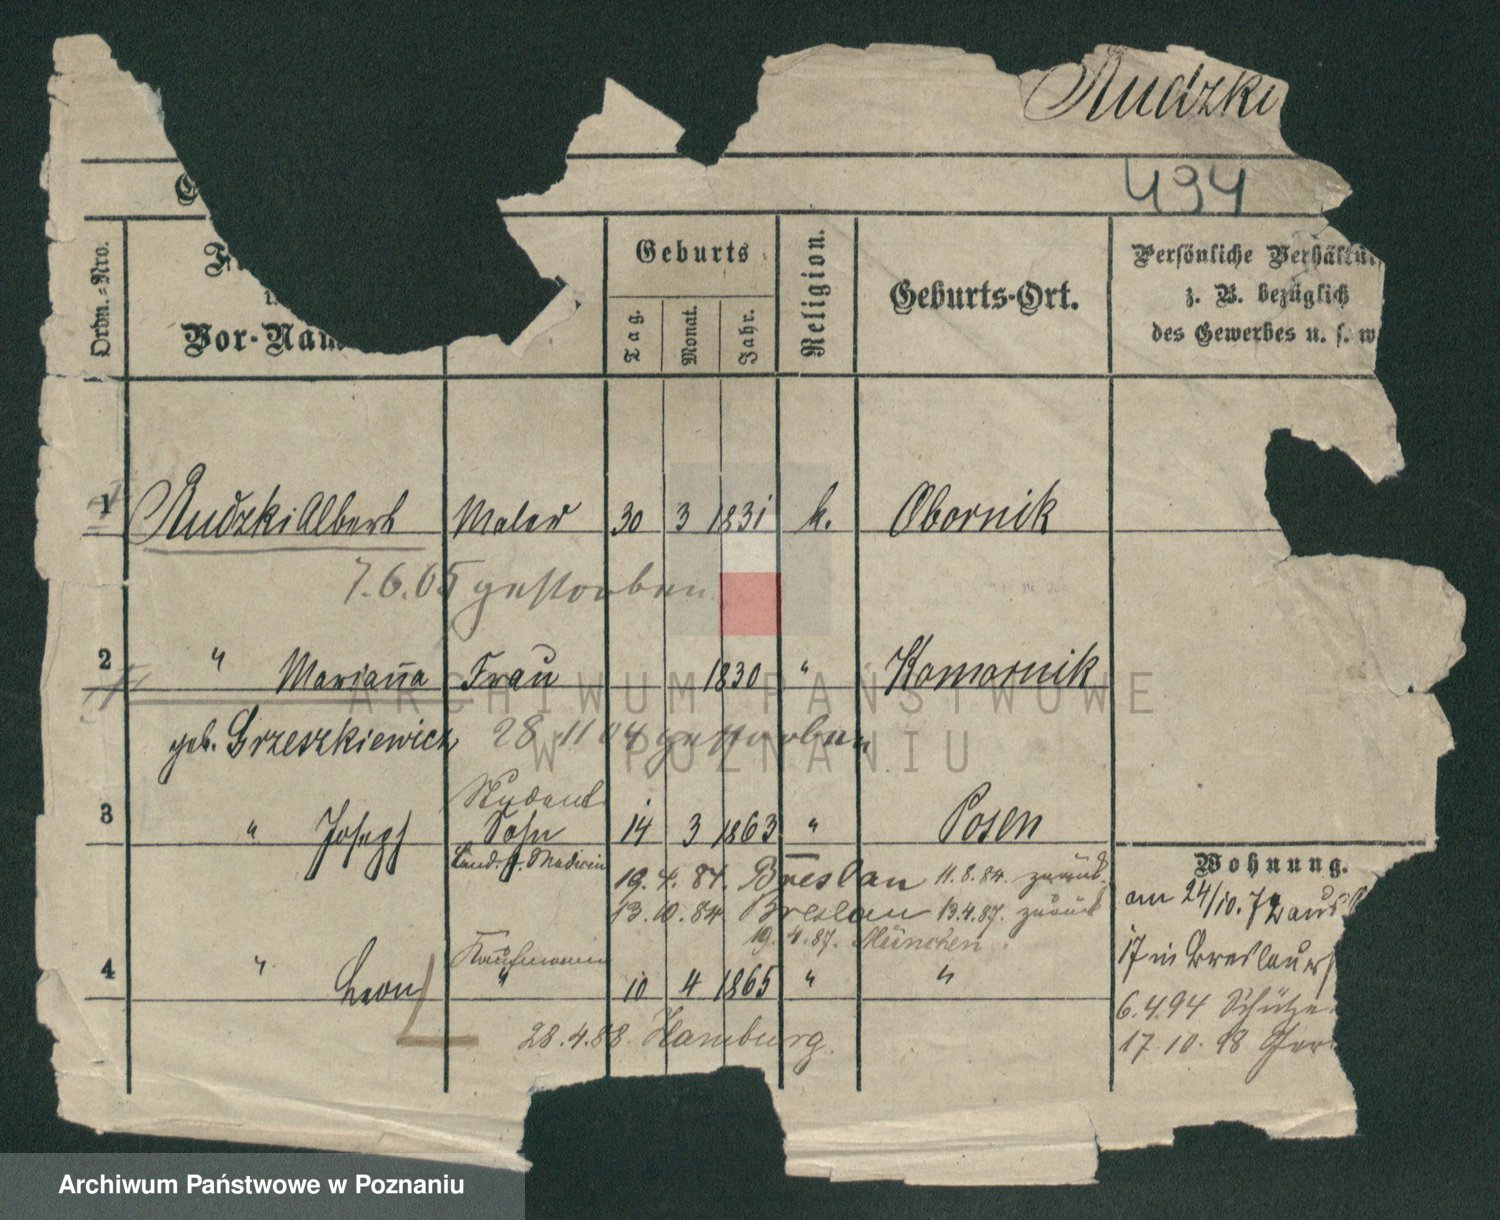 Rudzki
494
Ordn.-Nro.
Vor-Nam
Geburts
Tag.
Monat.
Jahr.
Religion.
Geburts-Ort.
Persönliche Verhältn
z. B. bezüglich
des Gewerbes u. s. w
1 Rudzki Albert Maler 30 3 1831 k. Obornik
7.6.05 gestorben
2 " Marianna Frau 1830 " Komornik
geb. Grzeszkiewicz 28 11 04 gestorben
Student
3 " Joseph Sohn 14 3 1863 " Posen
Cand. d. Medicin
19. 4. 84. Breslau 11. 8. 84. zurück
13. 10. 84 Breslau 13.4.87. zurück
19. 4. 87. München.
Kaufmann
4 " Leon " 10 4 1865 " "
28.4.88. Hamburg.
Wohnung.
am 24/10.72 aus
17 in Breslauer
6.4.94 Schütze
17.10.98
ARCHIWUM PAŃSTWOWE
W POZNANIU
Archiwum Państwowe w Poznaniu